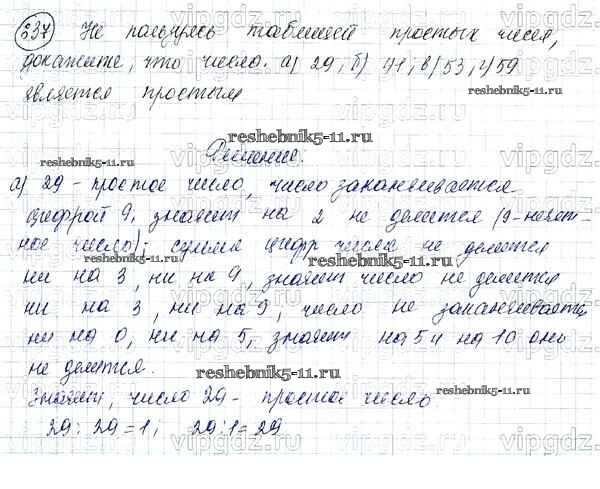 537 Не пользуясь таблицей простых чисел,
докажите, что числа: а) 29; б) 41; в) 53; г) 59
является простым
Решение.
а) 29 - простое число, число заканчивается
цифрой 9, значит на 2 не делится (9-нечёт-
ное число); сумма цифр числа не делится
ни на 3, ни на 9, значит число не делится
ни на 3, ни на 9, число не заканчивается
ни на 0, ни на 5, значит на 5 и на 10 оно
не делится.
Значит, число 29 - простое число.
29 : 29 = 1; 29 : 1 = 29
reshebnik5-11.ru
reshebnik5-11.ru
reshebnik5-11.ru
reshebnik5-11.ru
reshebnik5-11.ru
reshebnik5-11.ru
vipgdz.ru